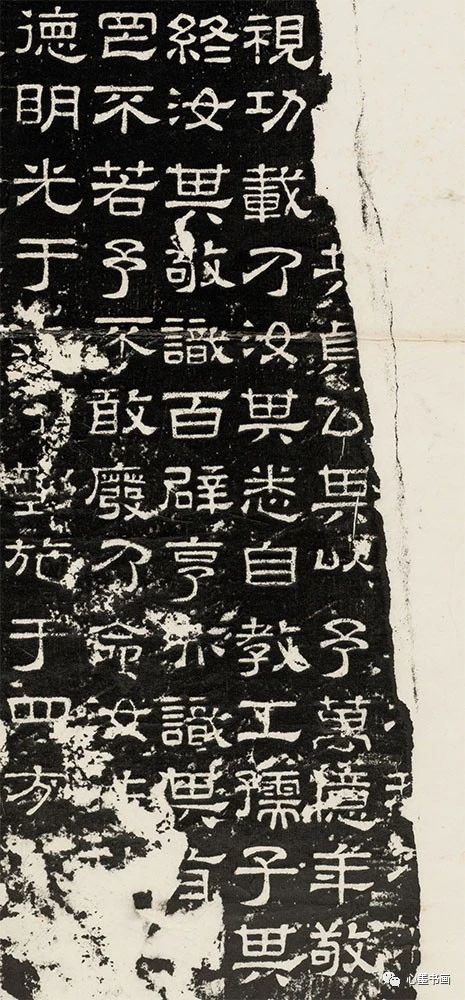 共貞公其以予萬億年敬
視功載乃汝其悉自教工孺子其
終汝其敬識百辟享亦識其有
罔不若予不敢廢乃命汝
德明光于勤施于四方
心画书画